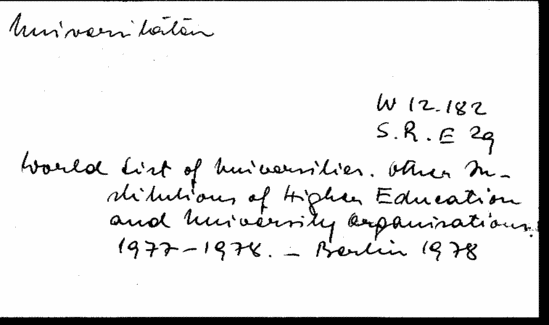 Universitäten
W 12.182
S.R. E 29
World List of Universities. Other In-
stitutions of Higher Education
and University Organisations.
1977-1978. - Berlin 1978